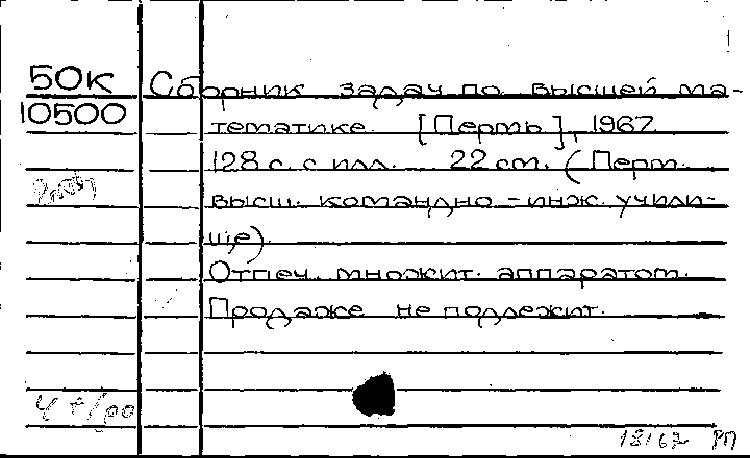 50К
10500
Сборник задач по высшей ма-
тематике. [Пермь], 1967.
128 с. с илл. 22 см. (Перм.
высш. командно-инж. учили-
ще)
Отпеч. множит. аппаратом.
Продаже не подлежит.